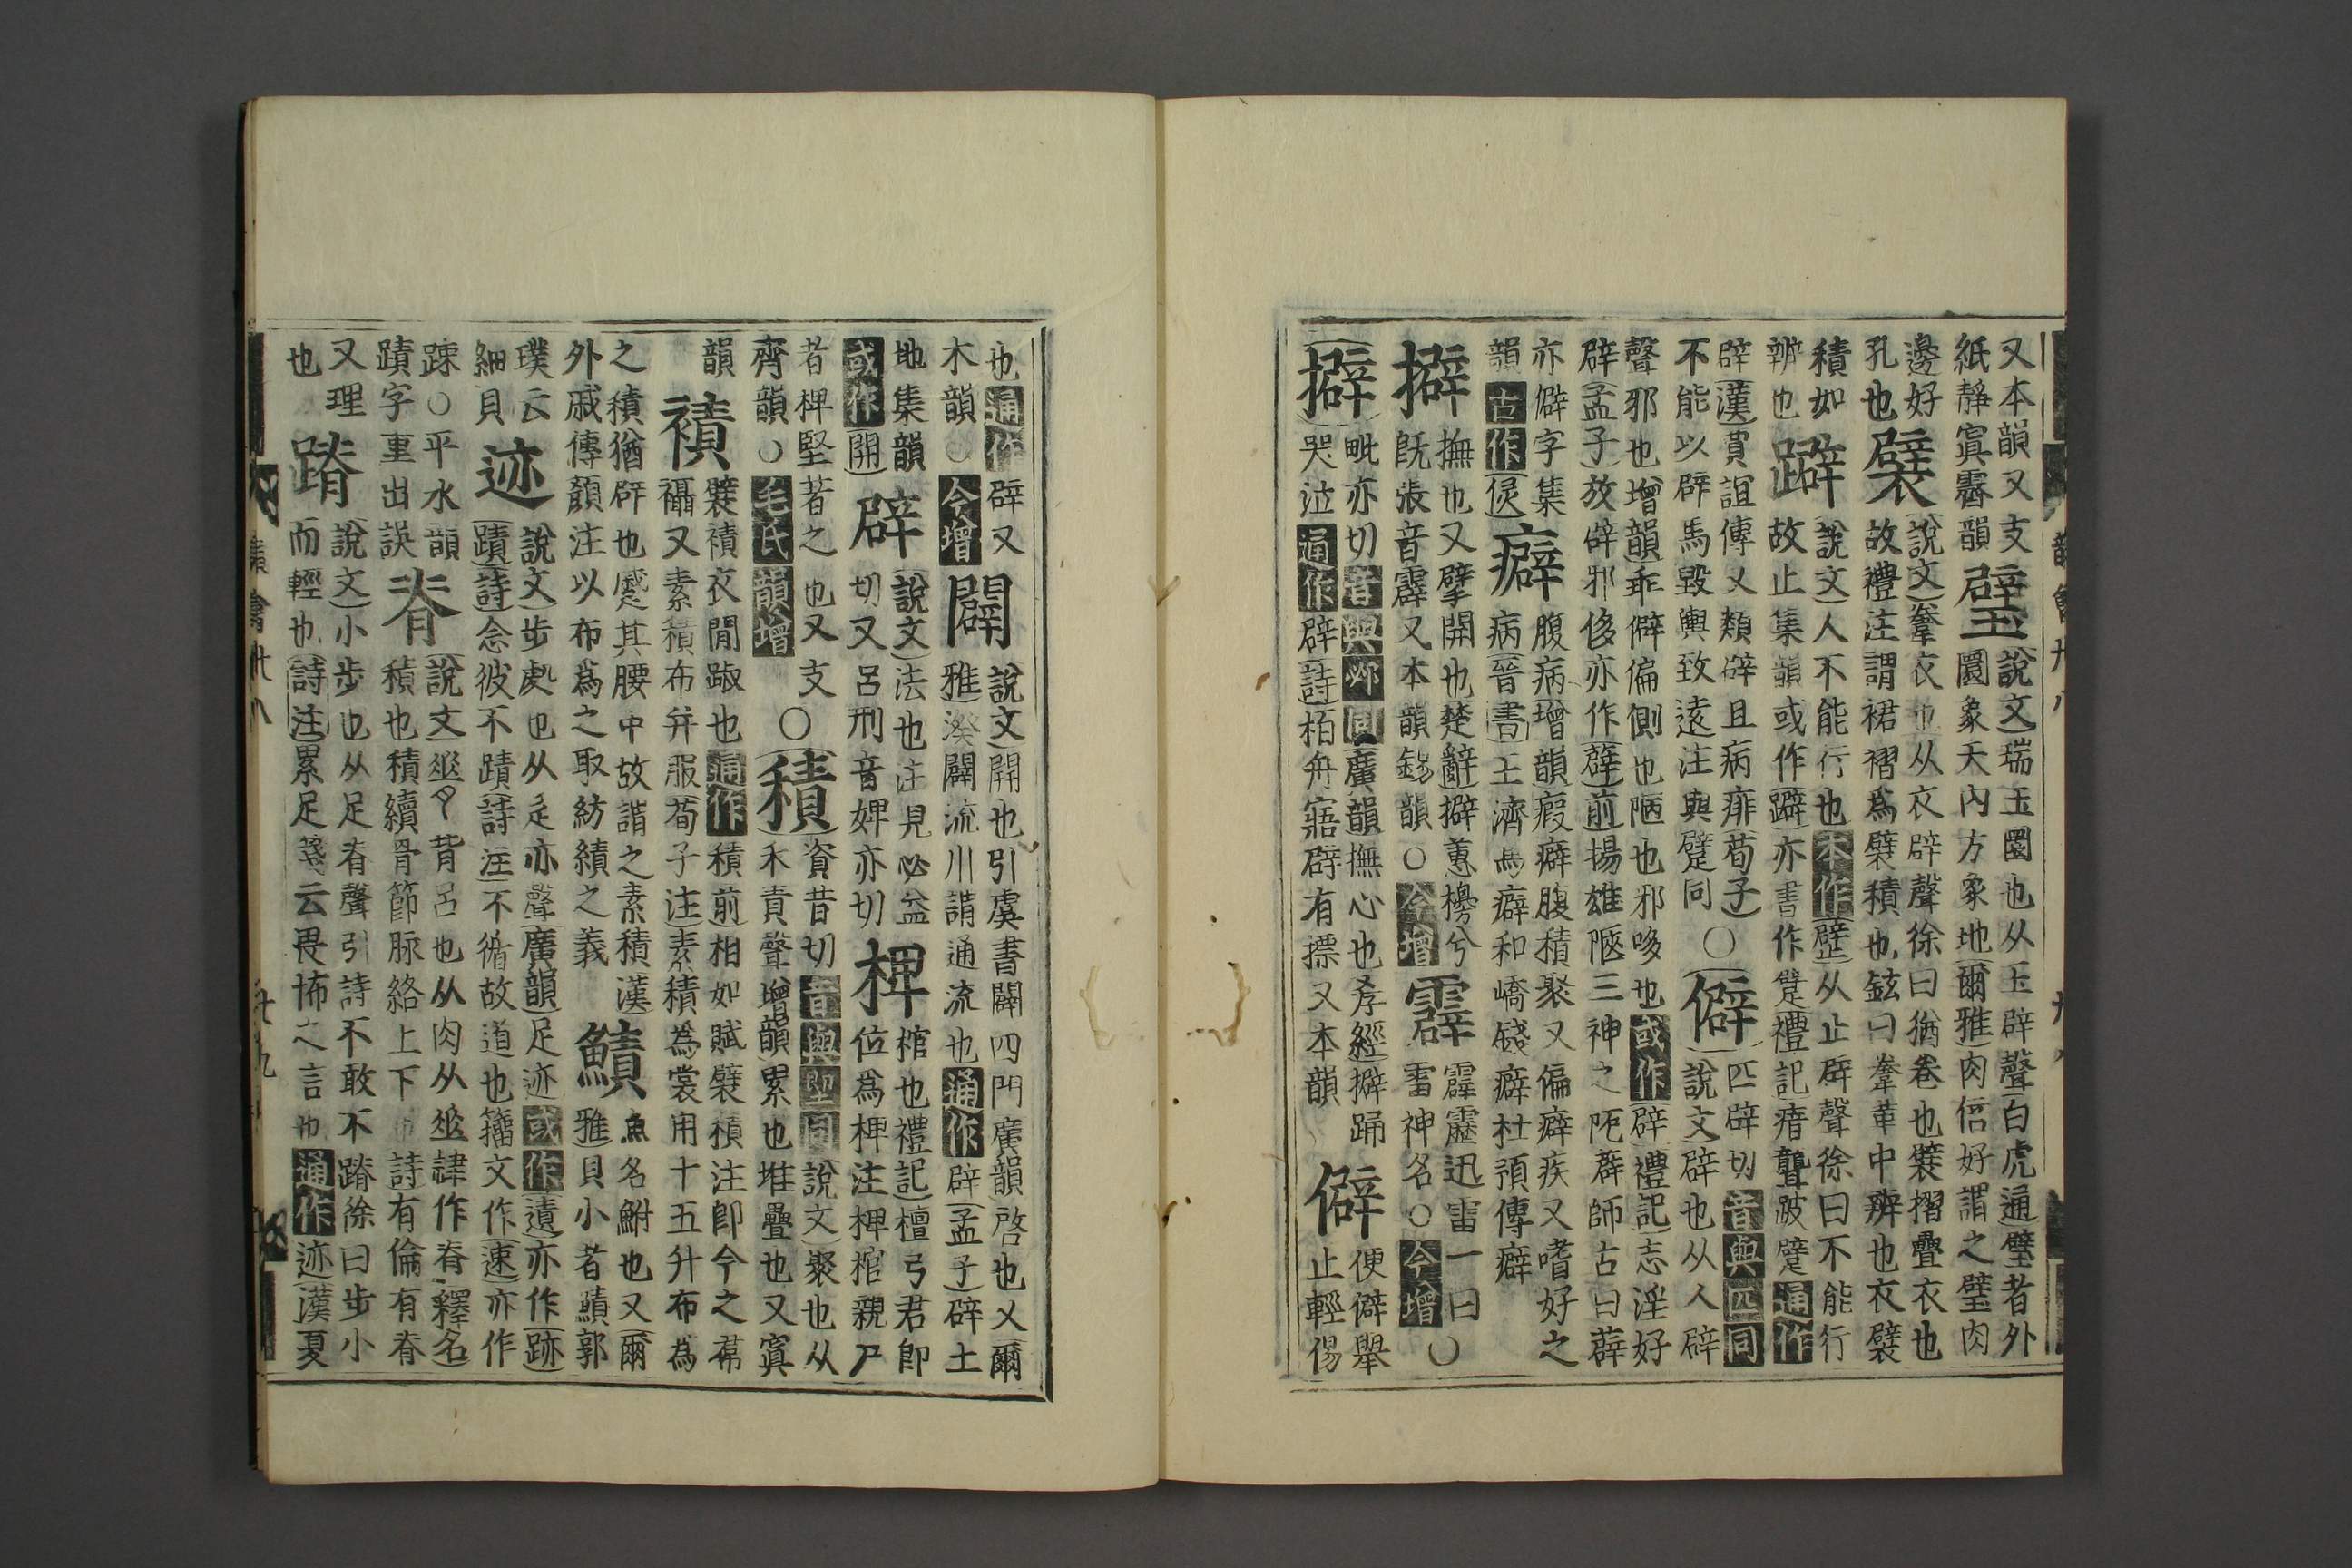 又本韻又支
紙靜寘霽韻
璧
說文瑞玉圜也从玉辟聲白虎通璧者外
圜象天內方象地爾雅肉倍好謂之璧肉
邊好
孔也
襞
說文韏衣也从衣辟聲徐曰猶卷也襞摺疊衣也
故禮注謂裙褶爲襞積也鉉曰韏革中辨也衣襞
積如
辨也
躃
說文人不能行也本作𨐨从止辟聲徐曰不能行
故止集韻或作躃亦書作躄禮記瘖聾跛躄通作
辟漢賈誼傳又類辟且病痱荀子
不能以辟馬毀輿致遠注與躄同
○
僻
匹辟切音與匹同
說文辟也从人辟
聲邪也增韻乖僻偏側也陋也邪哆也或作辟禮記志淫好
辟孟子放僻邪侈亦作薜前揚雄陿三神之阨薜師古曰薜
亦僻字集
韻古作侯
癖
腹病增韻瘕癖腹積聚又偏癖疾又嗜好之
病晉書王濟馬癖和嶠錢癖杜預傳癖
擗
撫也又擘開也楚辭擗蕙櫋兮
旣張音霹又本韻錫韻○今增
霹
霹靂迅雷一曰
雷神名○今增
○
擗
毗亦切音與郫同廣韻撫心也孝經擗踊
哭泣通作辟詩柏舟寤辟有摽又本韻
僻
便僻舉
止輕傷
也通作辟又
木韻○今增
闢
說文開也引虞書闢四門廣韻啓也又爾
雅湀闢流川謂通流也通作辟孟子辟土
地集韻
或作開
辟
說文法也注見必益
切又呂刑音婢亦切
椑
棺也禮記檀弓君卽
位爲椑注椑棺親尸
者椑堅著之也又支
齊韻○毛氏韻增
○
積
資昔切音與堲同說文聚也从
禾責聲增韻累也堆疊也又寘
韻
襀
襞襀衣閒蹙也通作積前相如賦襞積注卽今之帬
襵又素積布弁服荀子注素積爲裳用十五升布爲
之積猶辟也蹙其腰中故謂之素積漢
外戚傳顏注以布爲之取紡績之義
鰿
魚名鮒也又爾
雅貝小者鰿郭
璞云
細貝
迹
說文步處也从辵亦聲廣韻足迹或作蹟亦作跡
蹟詩念彼不蹟詩注不循故道也籀文作速亦作
踈○平水韻
蹟字重出誤
脊
說文𠦬背呂也从肉从𠦬隷作脊釋名
積也積續骨節脉絡上下也詩有倫有脊
又理
也
蹐
說文小步也从足脊聲引詩不敢不蹐徐曰步小
而輕也詩注累足箋云畏怖之言也通作迹漢夏